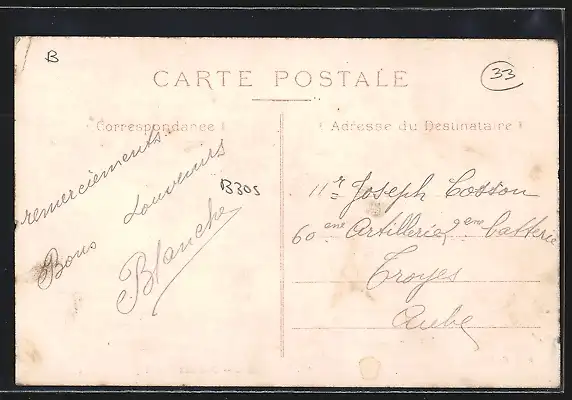 B
33
CARTE POSTALE
Correspondance
Adresse du Destinataire
remerciements
Bons Souvenirs
Blanche
B305
Mr Joseph Cosson
60eme Artillerie, 2eme batterie
Troyes
Aube